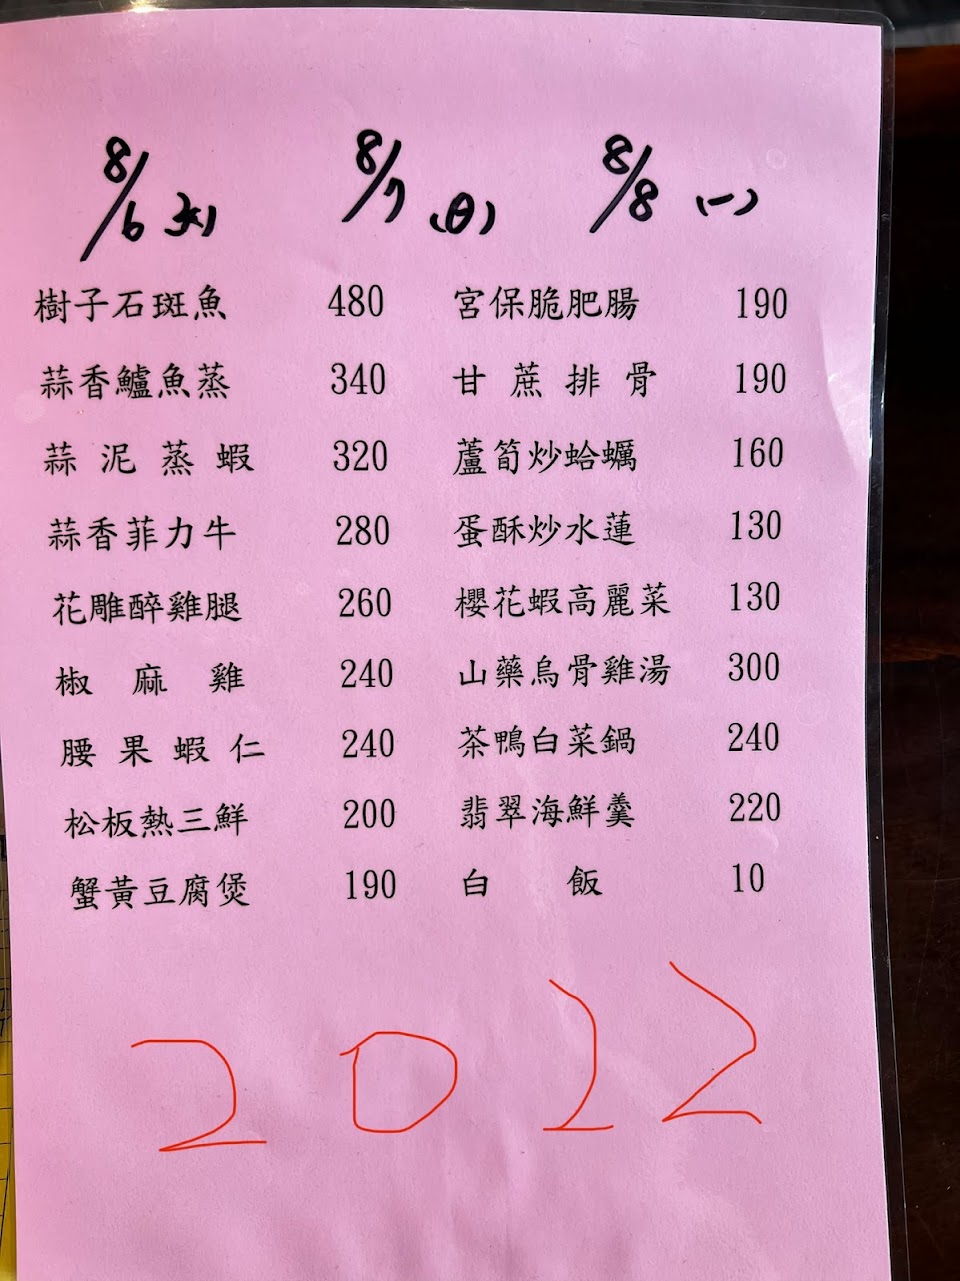 8/6 (六) 8/7 (日) 8/8 (一)
樹子石斑魚 480 宮保脆肥腸 190
蒜香鱸魚蒸 340 甘蔗排骨 190
蒜泥蒸蝦 320 蘆筍炒蛤蠣 160
蒜香菲力牛 280 蛋酥炒水蓮 130
花雕醉雞腿 260 櫻花蝦高麗菜 130
椒麻雞 240 山藥烏骨雞湯 300
腰果蝦仁 240 茶鴨白菜鍋 240
松板熱三鮮 200 翡翠海鮮羹 220
蟹黃豆腐煲 190 白飯 10
2022